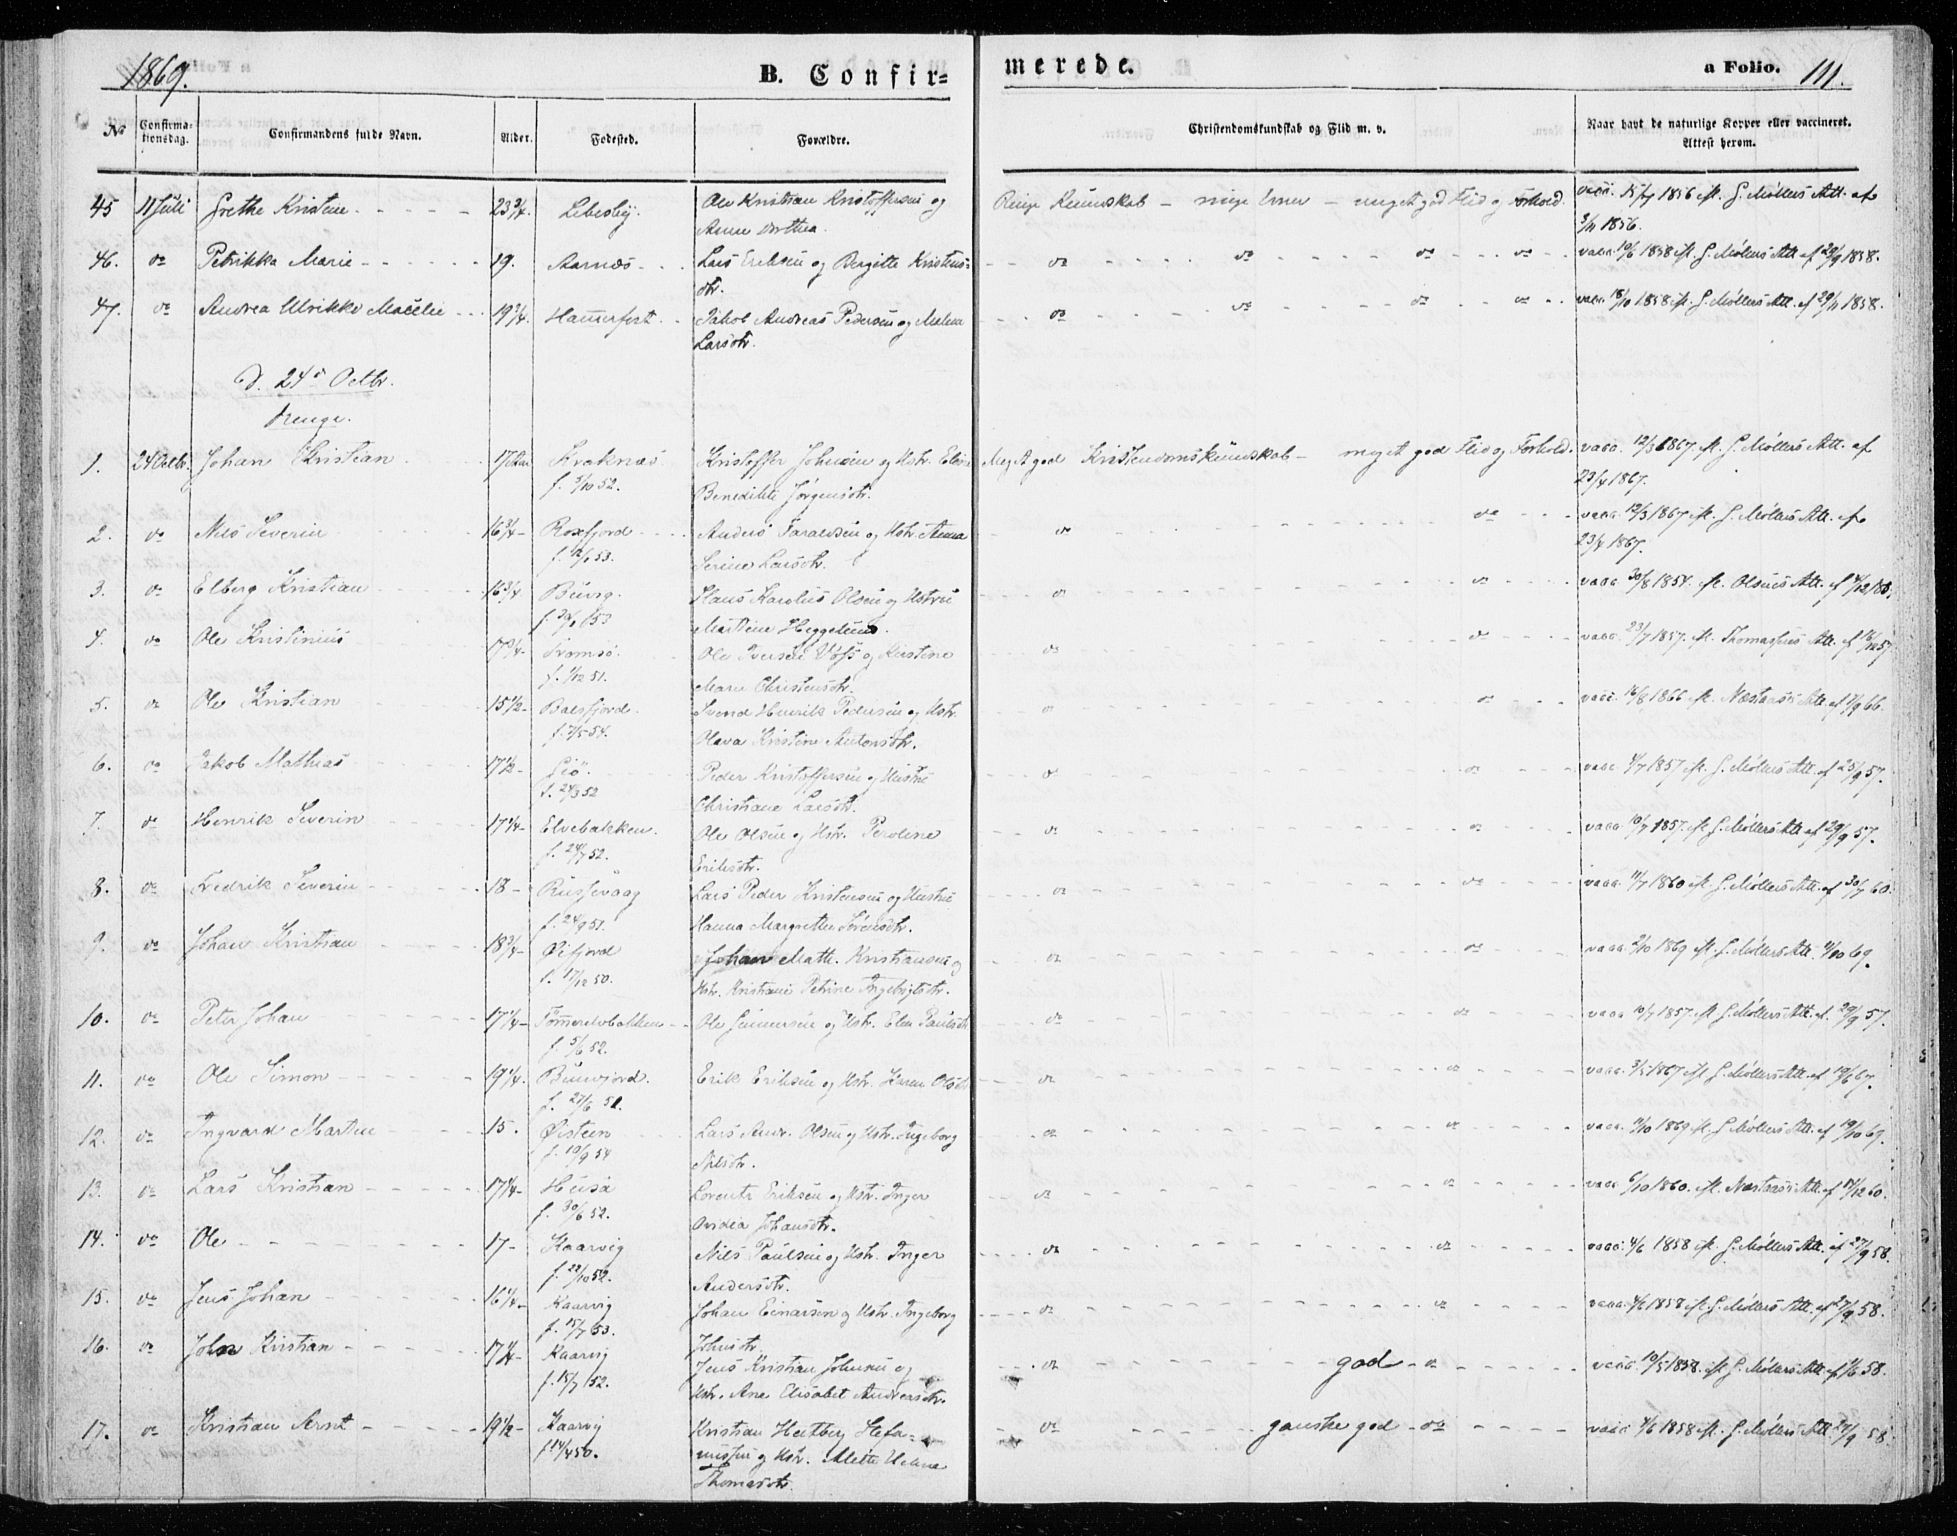 1869.
B. Confir=
merede.
a Folio. 111.
No
Confirma-
tionsdag.
Confirmandens fulde Navn.
Alder.
Fødested.
Forældre.
Christendomskundskab og Flid m. v.
Naar havt de naturlige Kopper eller vaccineret.
Attest herom.
45 11 Juli Grethe Kristine 23 3/4. Lebesby. Ole Kristian Kristoffersen og
Anne Dorthea.
Ringe Kundskab - meget god Flid og Forhold. vacc. 15/7 1856 ifl. G. Møllers Att. af
3/11 1856.
46. do Petrikka Marie 19. Aarnæs Lars Eriksen og Bergitte Kristens-
dtr.
do do do do vacc. 10/6 1858 ifl. G. Møllers Att. af 29/9 1858.
47. do Andrea Ulrikke 19 3/4. Hammerfest Jakob Andreas Pedersen og Malena
Larsdtr.
do do do do vacc. 18/10 1858 ifl. G. Møllers Att. af 29/11 1858.
D. 24de Octbr.
Drenge.
1. 24 Octbr. Johan Christian 17 Kraknæs Kristoffer Johnsen og Hstr.
f. 3/10 52. Benedikte Jørgensdtr.
Meget god Kristendomskundskab - meget god Flid og Forhold. vacc. 12/3 1867. ifl. G. Møllers Att. af
23/4 1867.
2. do Nils Severin 16 3/4 Anders Haraldsen og Hstr. Anna
Serine Larsdtr.
do do vacc. 12/3 1867 ifl. G. Møllers Att. af
23/4 1867.
3. do Elberg Kristian 16 3/4 Hans Karolus Olsen og Hstru
Martine Heggelund.
do do vacc. 30/8 1854. ifl. Olsens Att. af
4. do Ole Kristinius 17 3/4 Tromsø. Ole Iversen Voss og Kirstine
f. 1/12 51. Marie Christensdtr.
do do vacc. 23/7 1857. ifl. Att. af 16/12 57.
5. do Ole Kristian 15 1/2 Balsfjord. Svend Henrik Pedersen og Hstr.
f. 7/5 54. Olava Kristine Antonsdtr.
do do vacc. 16/8 1866 ifl. Att. af 1/9 66.
6. do Jakob Mathias 17 1/2 Peder Kristoffersen og Hustru
f. 24/3 52 Christiane Larsdtr.
do do vacc. 4/7 1857 ifl. G. Møllers Att. af 25/9 57.
7. do Henrik Severin 17 1/4 Elvebakken. Ole Olsen og Hstr. Perolene
f. 24/7 52. Eriksdtr.
do do vacc. 10/7 1857. ifl. G. Møllers Att. af 29/9 57.
8. do Fredrik Severin 18 Lars Peder Kristensen og Hustru
f. 24/9 51. Hanna Margrethe Sørensdtr.
do do vacc. 11/7 1860 ifl. G. Møllers Att. af 30/7 60.
9. do Johan Kristian 18 3/4 Øifjord Johan Math. Kristiansen og
f. 17/12 50. Hstr. Kristiane Petrine Ingebrigtsdtr.
do do vacc. 2/10 1869 ifl. G. Møllers Att. 4/10 69.
10. do Peter Johan 17 1/4 Tømmerelvbakken Ole Gunnersen og Hstr. Elen Paulsdtr.
f. 5/6 52.
do do vacc. 10/7 1857. ifl. G. Møllers Att. af. 29/9 57.
11. do Ole Simon 19 1/4. Burfjord. Erik Eriksen og Hstr. Karen Olsdtr.
do do vacc. 3/5 1867 ifl. G. Møllers Att. af 19/6 67.
12. do Ingvard Martin 15. Øisteen Lars Andr. Olsen og Hstr. Ingeborg
f. 10/9 54 Nilsdtr.
do do vacc. 11/10 1869 ifl. G. Møllers Att. af 19/10 69.
13. do Lars Kristian 17 1/4 Husa Lorents Eriksen og Hstr. Inger
f. 30/6 52. Ovidia Johansdtr.
do do vacc. 6/10 1860. ifl. Att. af 17/12 60.
14. do Ole 17 Kaarvig Nils Paulsen og Hstr. Inger
f. 22/10 52. Andersdtr.
do do vacc. 4/6 1858 ifl. G. Møllers Att. af 27/9 58.
15. do Jens Johan 16 1/4 Kaarvig Johan Einarsen og Hstr. Ingeborg
f. 15/7 53. Johnsdtr.
do do vacc. 4/6 1858 ifl. G. Møllers Att. af 27/9 58.
16. do John Kristian 17 1/4 Kaarvig Jens Kristian Johnsen og
f. 15/7 52. Hstr. Ane Elisabet Andersdtr.
do god do vacc. 10/5 1858. ifl. G. Møllers Att. af 1/6 58.
17. do Kristian Arnt 19 1/2 Kaarvig Kristian Hertberg Stefa-
f. 14/4 50. nussen og Hstr. Mette Helene
Thomasdtr.
do ganske god do vacc. 4/6 1858 ifl. G. Møllers Att. 27/9 58.